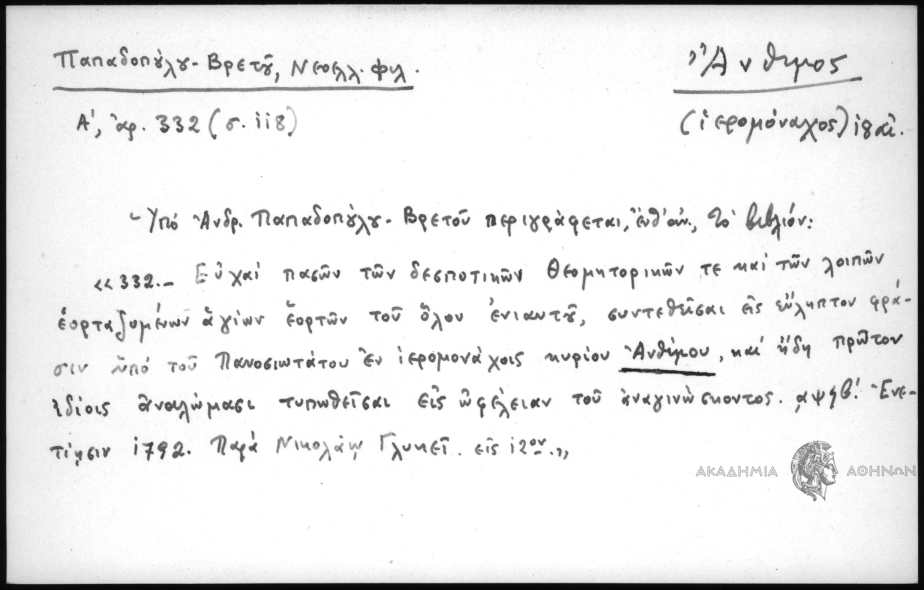 Παπαδοπούλου-Βρετοῦ, Νεοελλ. φιλ.
Ἄνθιμος
Α', ἀρ. 332 (σ. 118)
(ἱερομόναχος) 18 αἰ.
Ὑπό Ἀνδρ. Παπαδοπούλου-Βρετοῦ περιγράφεται, ἔνθ' ἀν., τό βιβλίον:
«332.– Εὐχαί πασῶν τῶν δεσποτικῶν Θεομητορικῶν τε καί τῶν λοιπῶν
ἑορταζομένων ἁγίων ἑορτῶν τοῦ ὅλου ἐνιαυτοῦ, συντεθεῖσαι εἰς εὔληπτον φρά-
σιν ὑπό τοῦ Πανοσιωτάτου ἐν ἱερομονάχοις κυρίου Ἀνθίμου, καί ἤδη πρῶτον
ἰδίοις ἀναλώμασι τυπωθεῖσαι εἰς ὠφέλειαν τοῦ ἀναγινώσκοντος. ͵αψϟβ'. Ἐνε-
τίῃσιν 1792. Παρά Νικολάῳ Γλυκεῖ. εἰς 12ον.»
ΑΚΑΔΗΜΙΑ ΑΘΗΝΩΝ